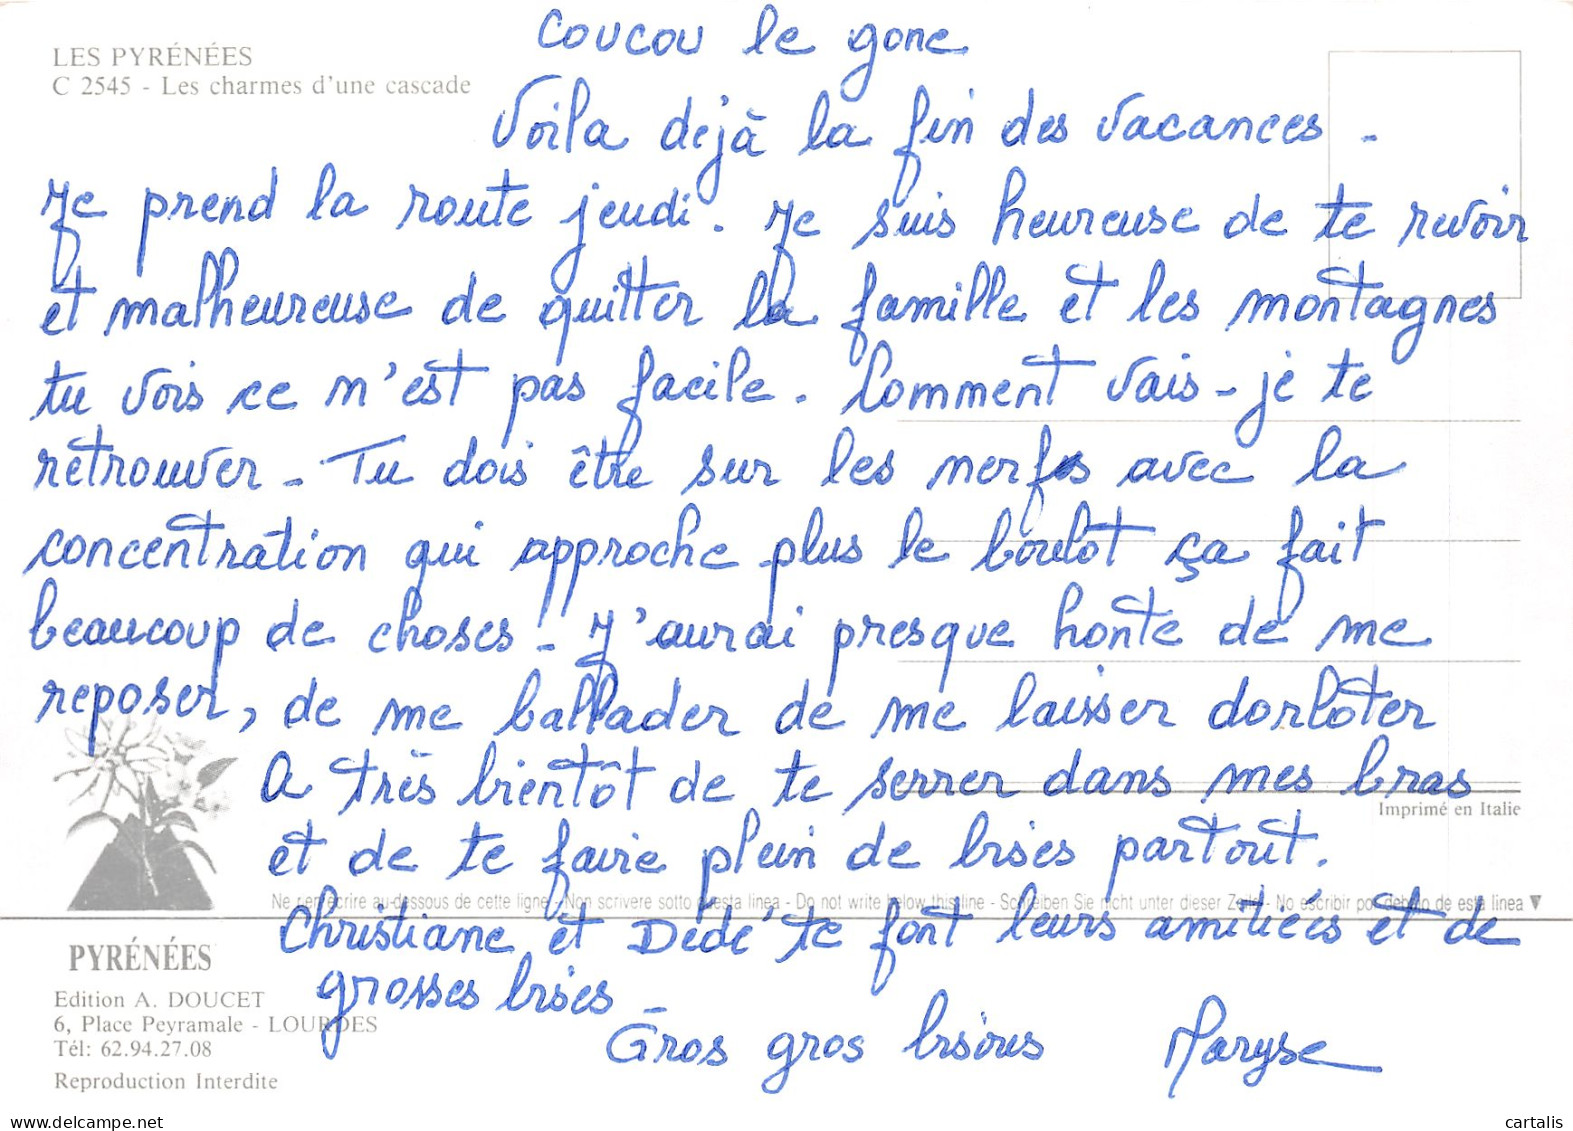 LES PYRÉNÉES
C 2545 - Les charmes d'une cascade
Coucou le gone
Voila déjà la fin des vacances -
Je prend la route jeudi. Je suis heureuse de te revoir
et malheureuse de quitter la famille et les montagnes
tu vois ce n'est pas facile. Comment vais-je te
retrouver - Tu dois être sur les nerfs avec la
concentration qui approche plus le boulot ça fait
beaucoup de choses! - J'aurai presque honte de me
reposer, de me ballader de me laisser dorloter
A très bientôt de te serrer dans mes bras
Imprimé en Italie
et de te faire plein de bises partout.
Ne rien écrire au-dessous de cette ligne - Non scrivere sotto questa linea - Do not write below this line - Schreiben Sie nicht unter dieser Zeile - No escribir por debajo de esta linea ▼
Christiane et Dédé te font leurs amitiées et de
grosses bises -
Gros gros bisous Maryse
PYRÉNÉES
Edition A. DOUCET
6, Place Peyramale - LOURDES
Tél: 62.94.27.08
Reproduction Interdite
www.delcampe.net
cartalis